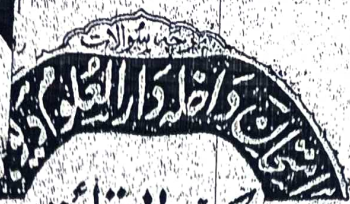 پرچہ سوالات
امتحان داخلہ دارالعلوم دیو